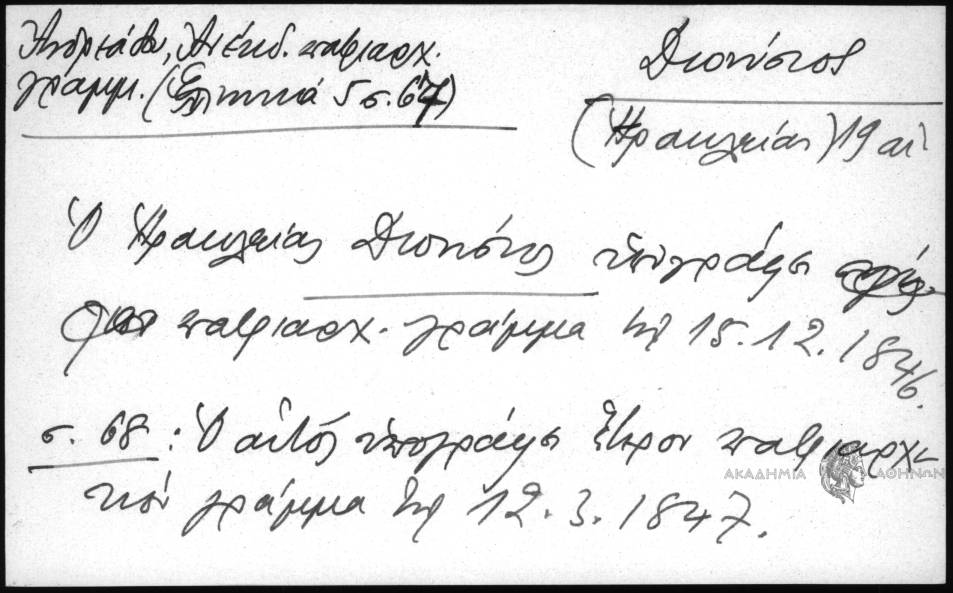 Ἀνδρεάδου, Ἀνέκδ. πατριαρχ.
γράμμ. (Ἑπτ σ. 67)
Διονύσιος
(Ἡρακλείας) 19 αἰ
Ὁ Ἡρακλείας Διονύσιος ὑπογράφει
πατριαρχ. γράμμα τῇ 15.12.1846.
σ. 68: Ὁ αὐτὸς ὑπογράφει ἕτερον πατριαρχι-
κὸν γράμμα τῇ 12.3.1847.
ΑΚΑΔΗΜΙΑ ΑΘΗΝΩΝ